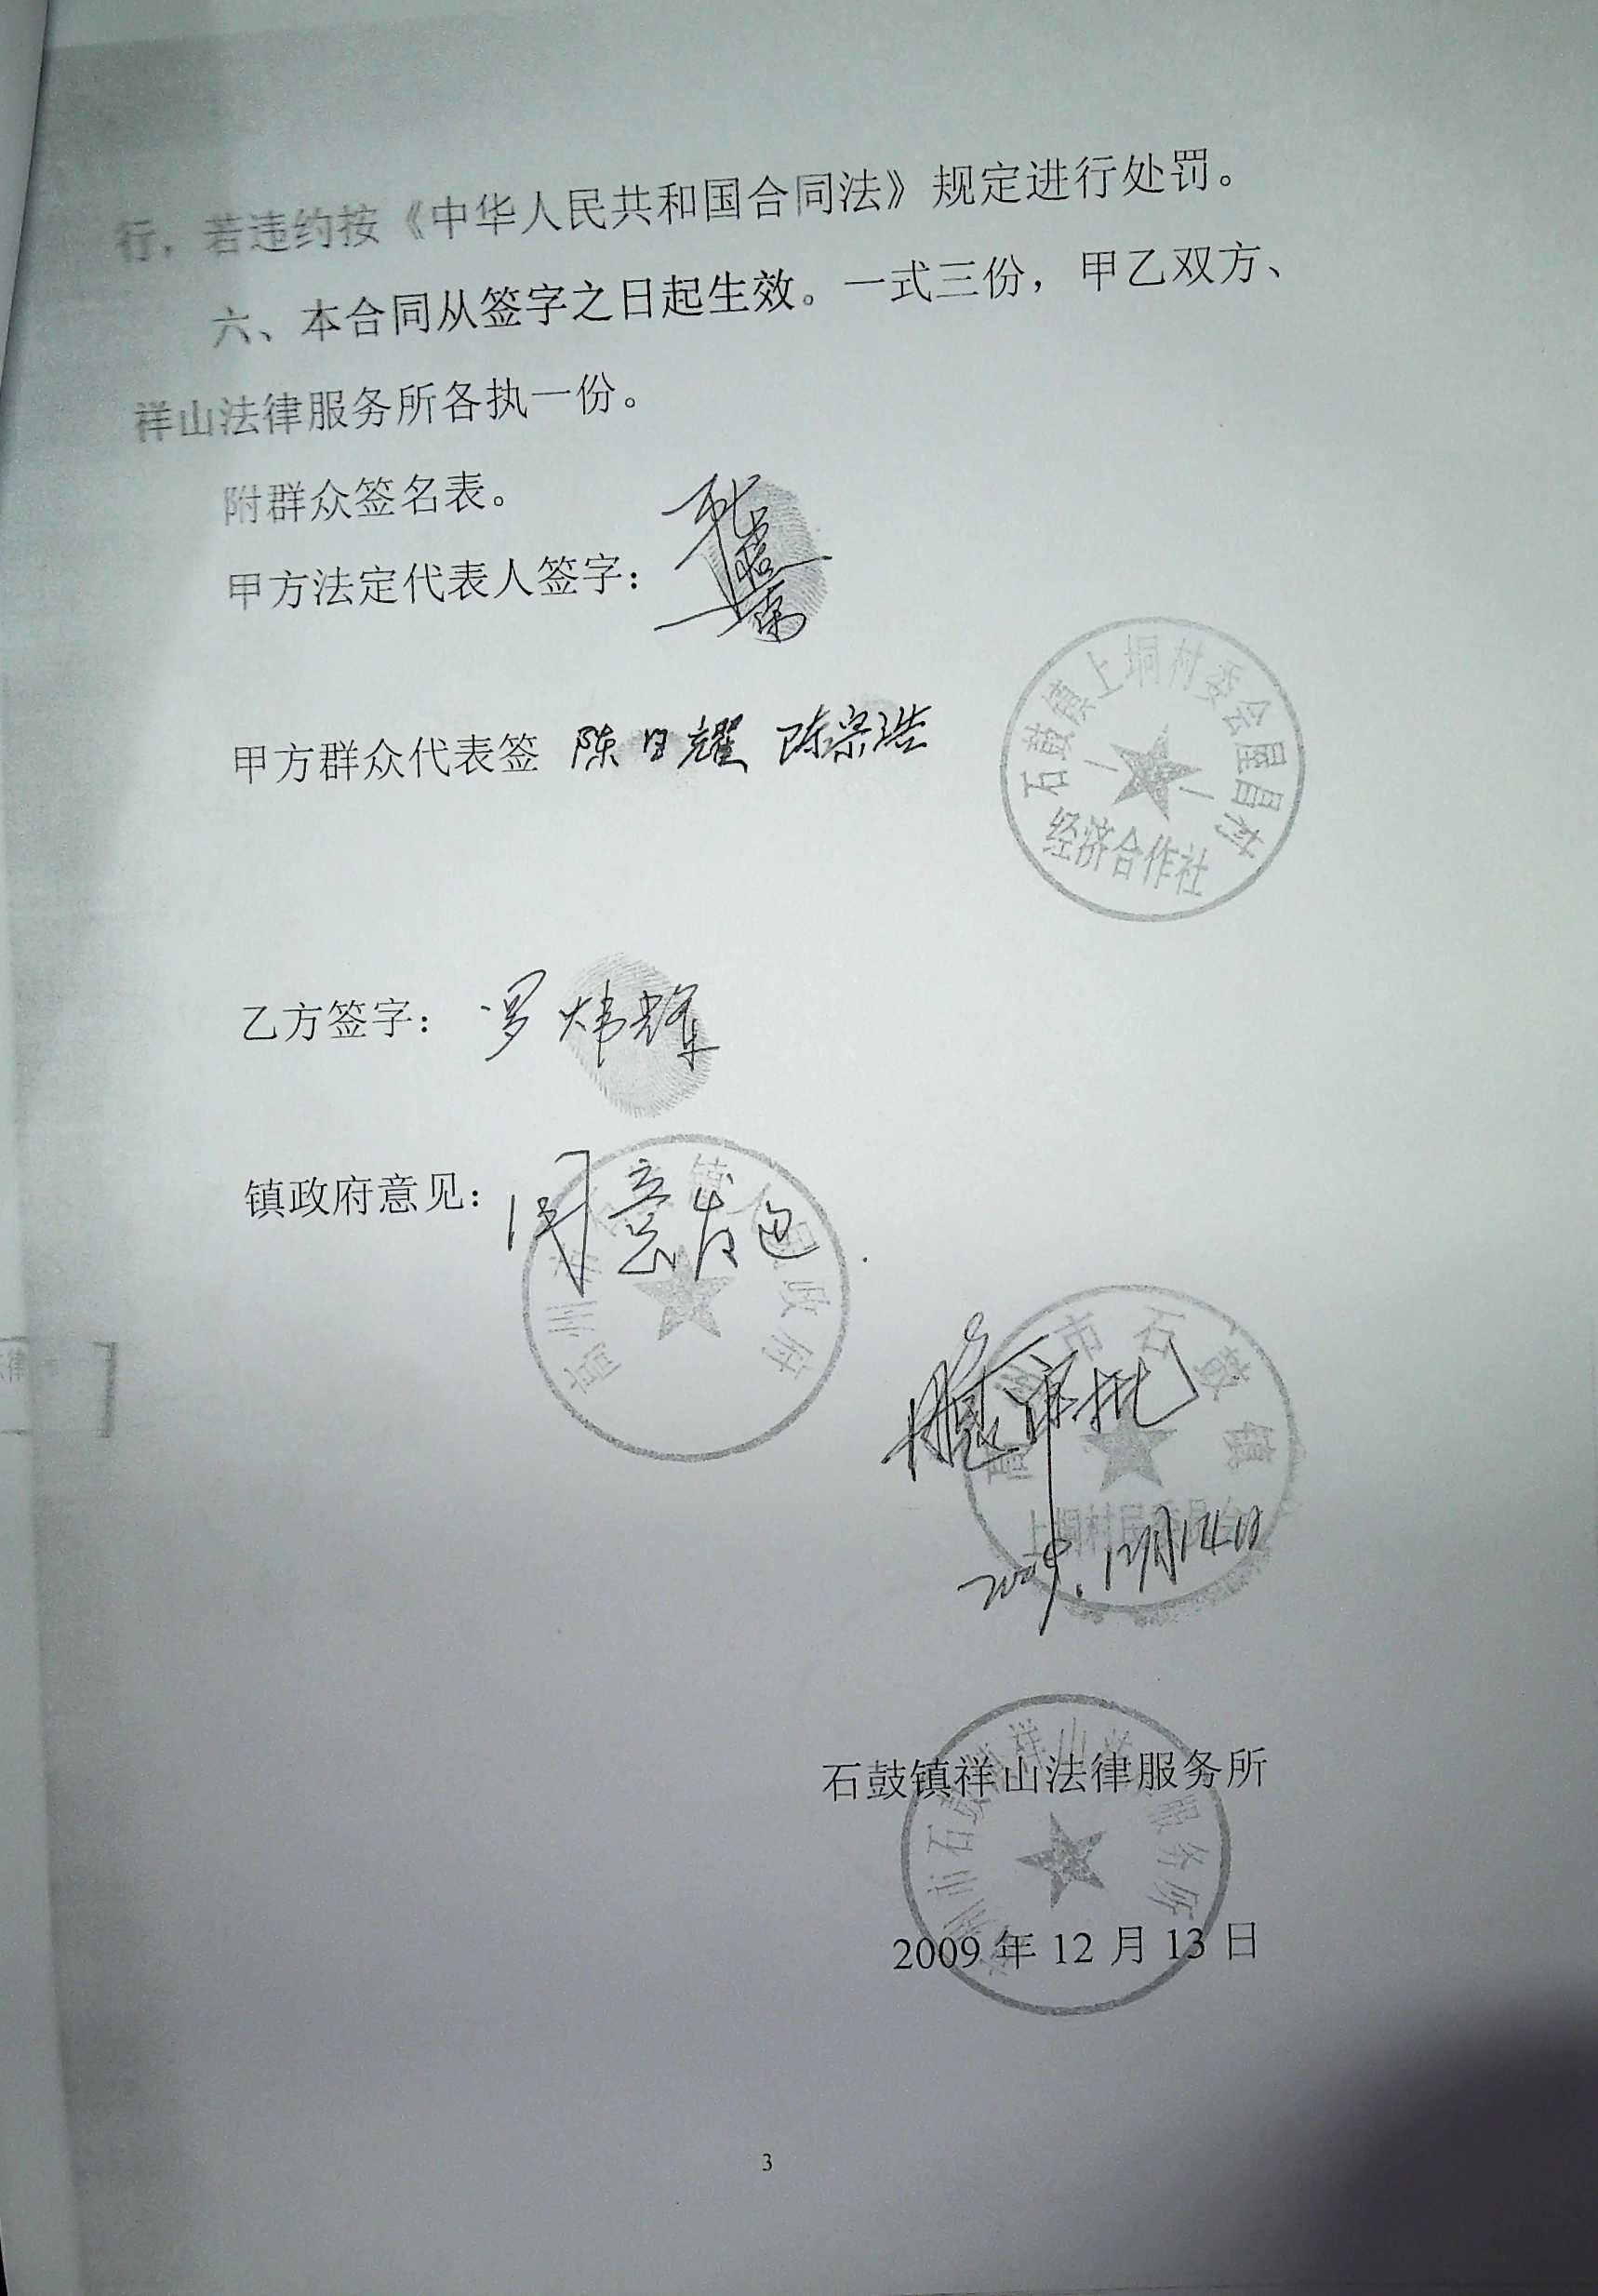 行，若违约按《中华人民共和国合同法》规定进行处罚。
六、本合同从签字之日起生效。一式三份，甲乙双方、
祥山法律服务所各执一份。
附群众签名表。
甲方法定代表人签字：
甲方群众代表签 陈日耀 陈宗浩
石鼓镇上垌村委会屋昌村
经济合作社
乙方签字： 罗炜辉
镇政府意见： 同意发包
镇人民政府
石鼓镇
上垌村民委员会
2009.12月14日
石鼓镇祥山法律服务所
市石鼓镇祥山法律服务所
2009 年 12 月 13 日
3